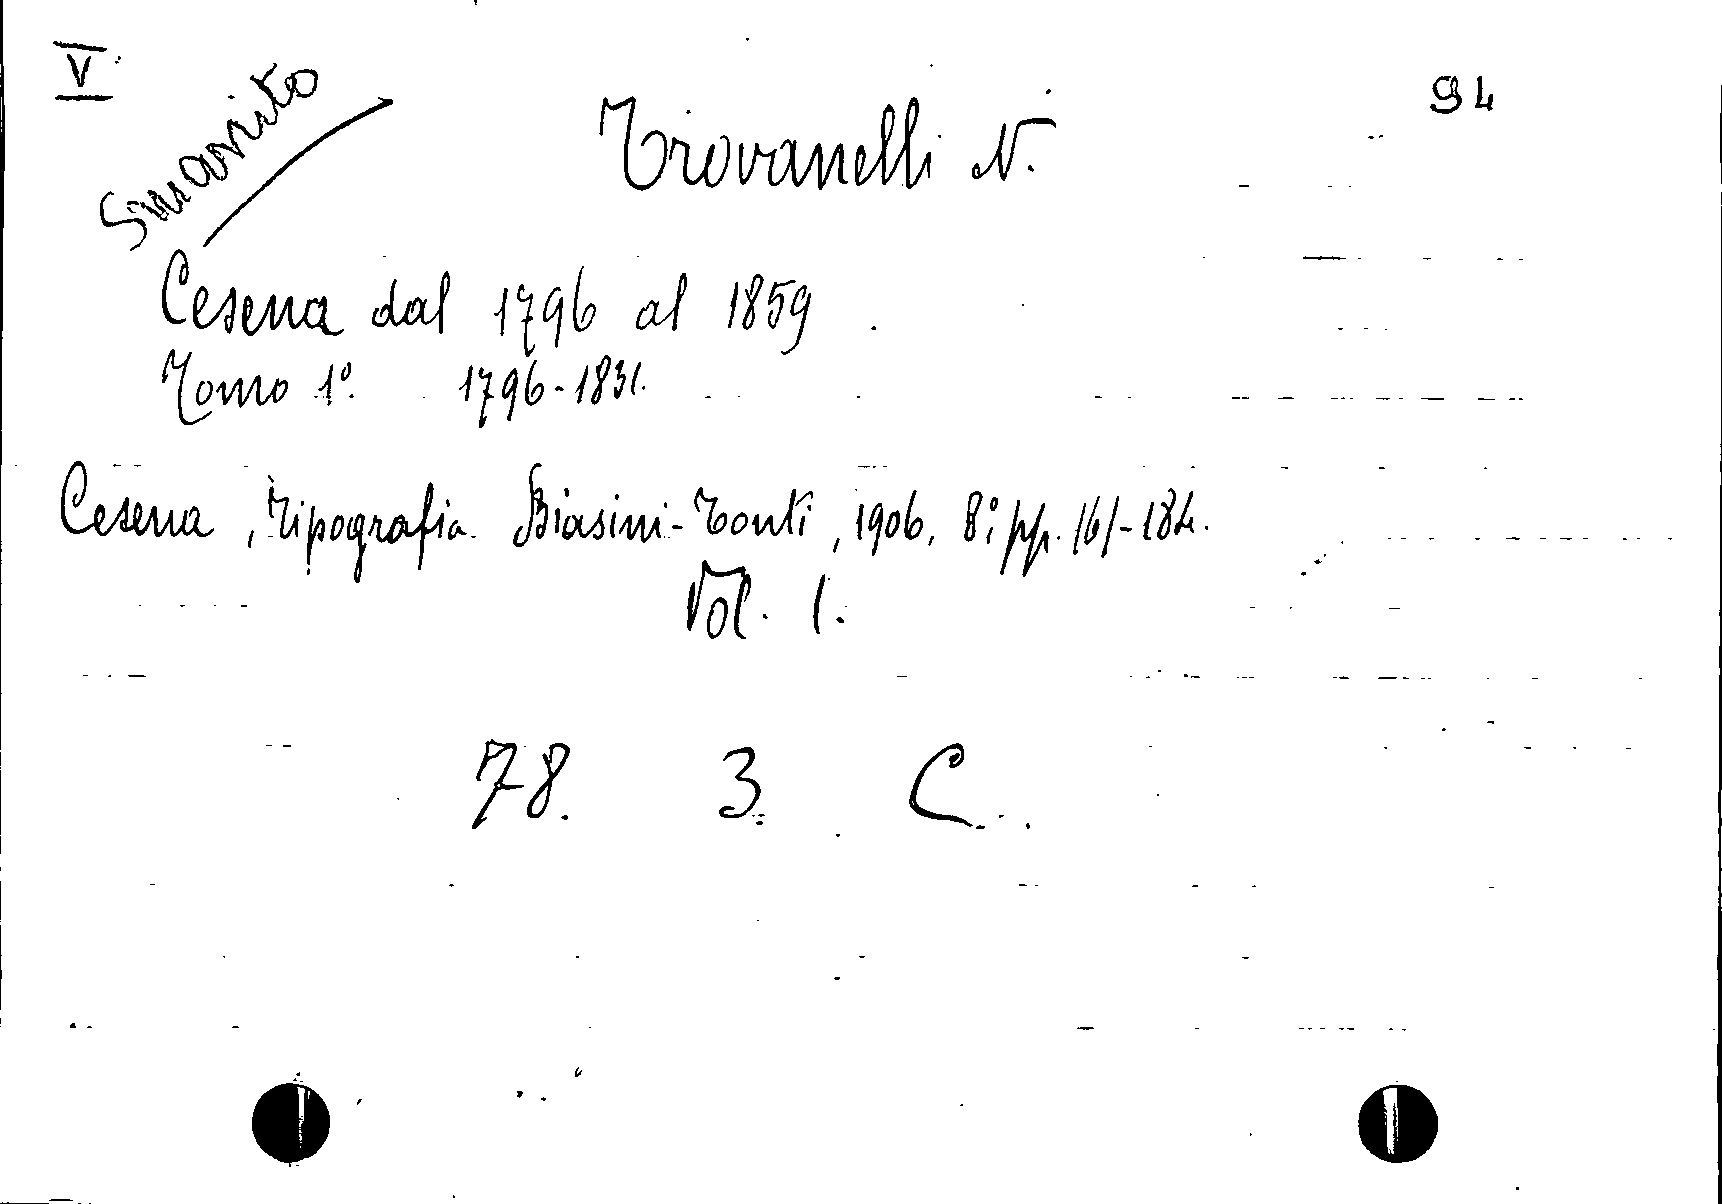 V
94
Smarrito
Trovanelli N.
Cesena dal 1796 al 1859
Tomo 1º. 1796-1831.
Cesena, Tipografia Biasini-Tonti, 1906. 8º; pp. 161-184.
Vol. 1.
78. 3. C.